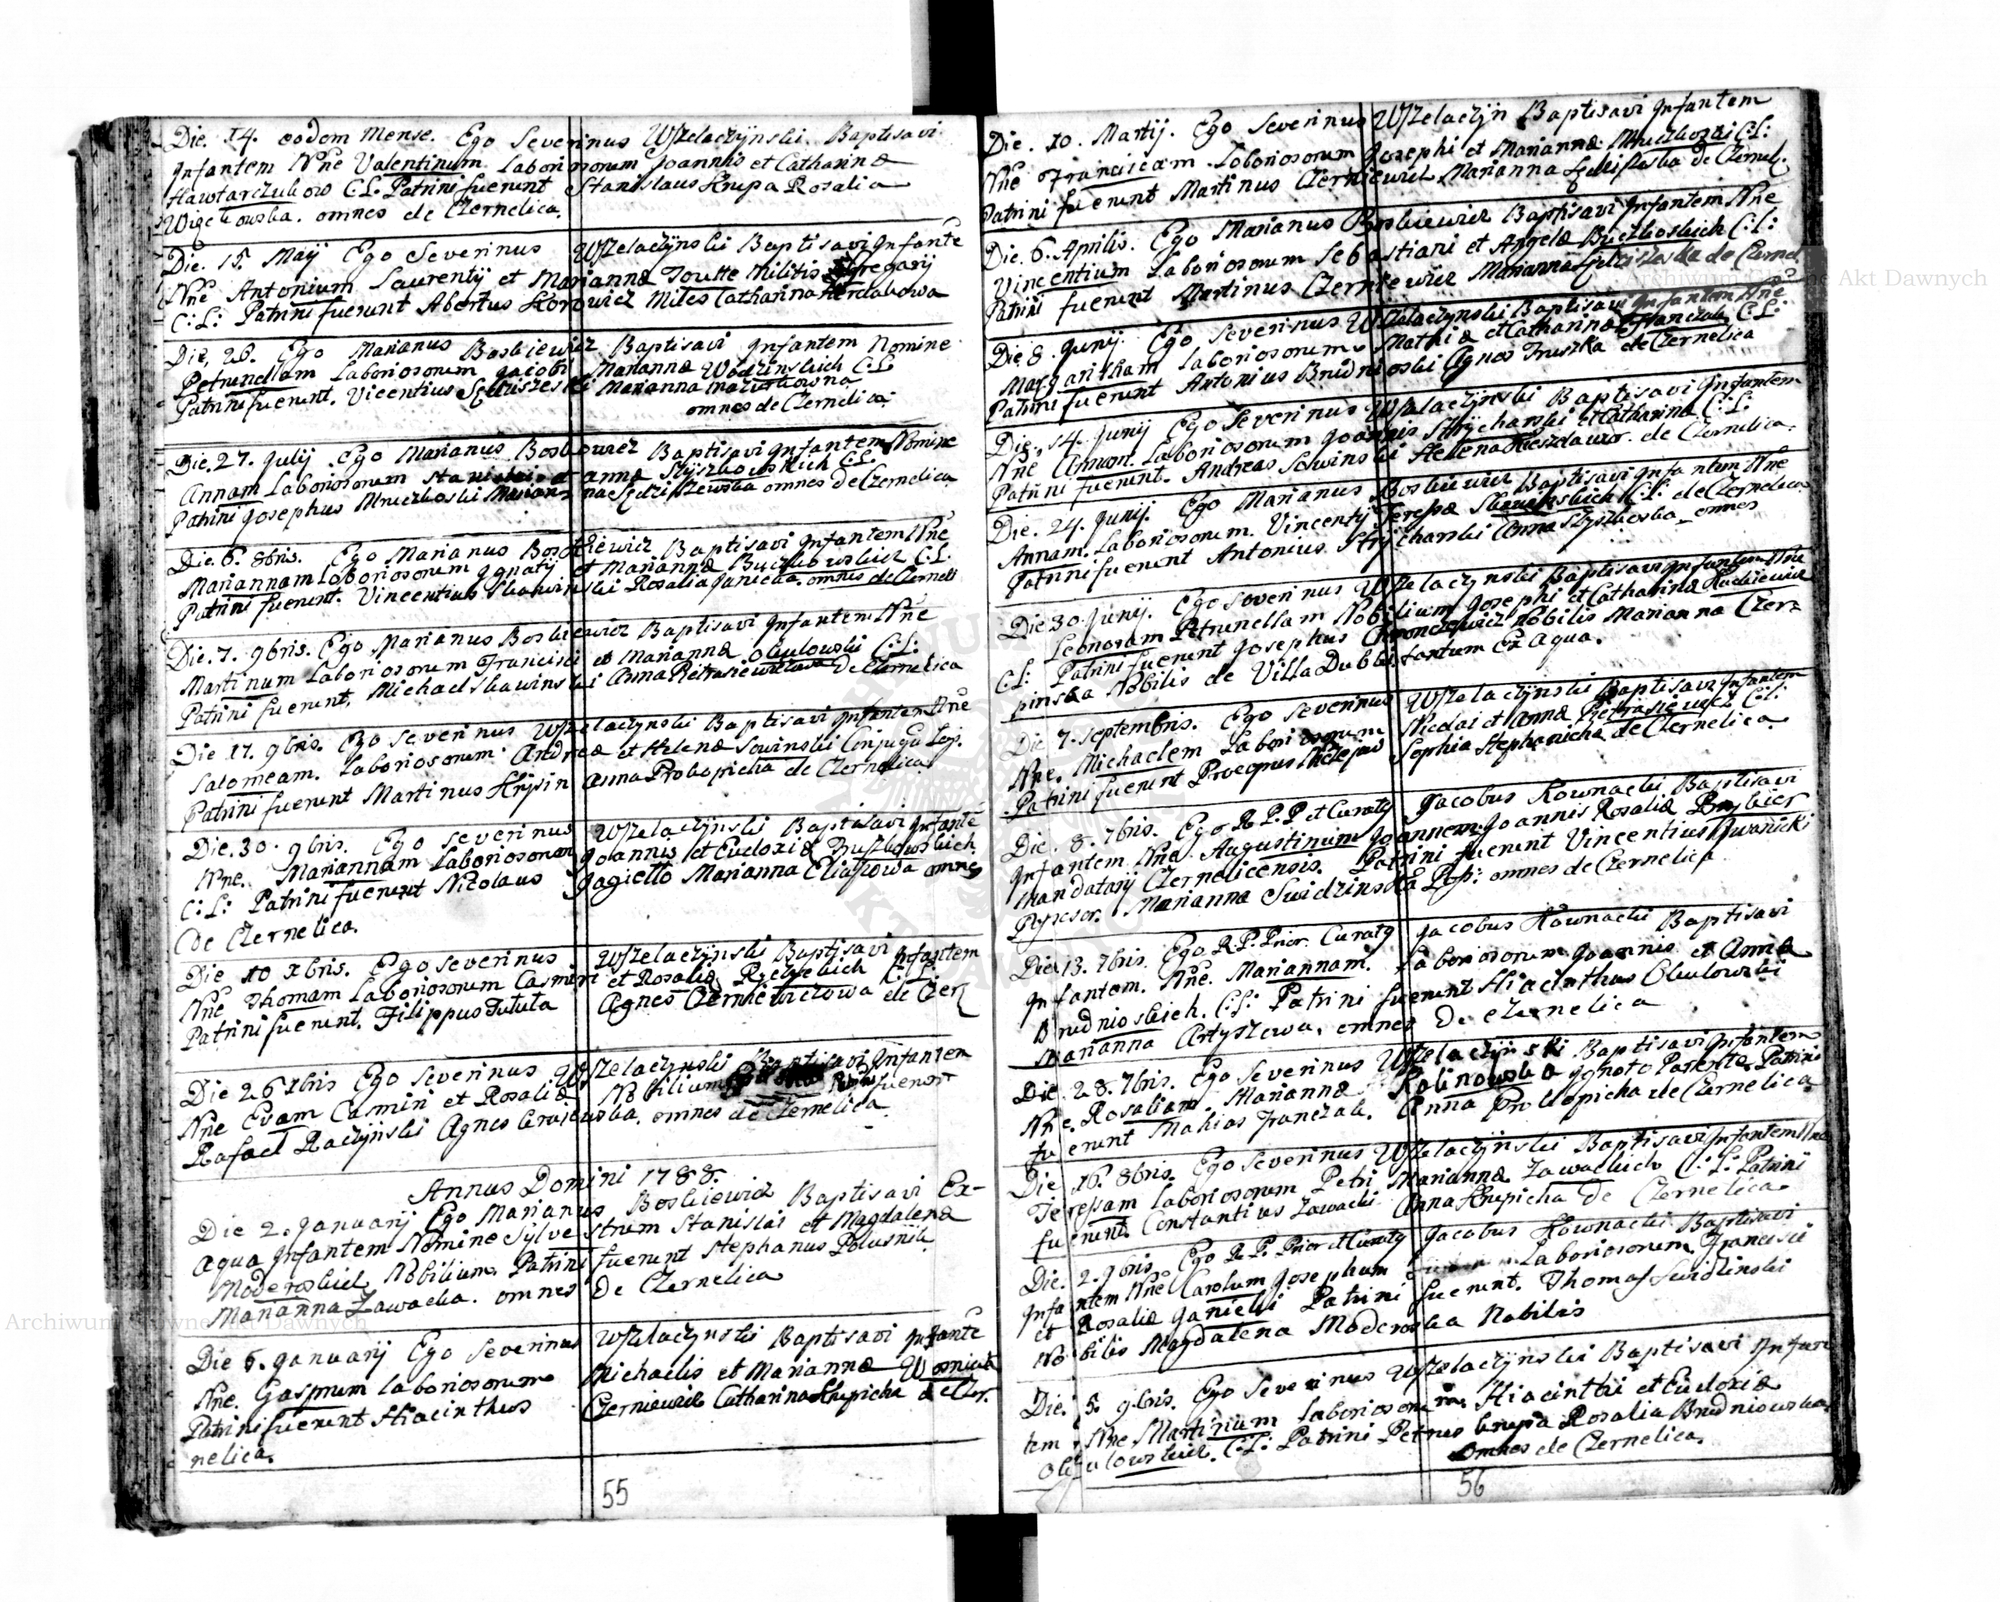 Die. 14. eodem Mense. Ego Severinus Wszelaczynski. Baptisavi
Infantem Nne Valentinum Laboriosorum Joannis et Catharinæ
C.L. Patrini fuerunt Stanislaus Krupa Rosalia
omnes de Czernelica.
Die. 15. Maij Ego Severinus Wszelaczynski Baptisavi Infante
Nne Antonium Laurentij et Mariannæ Militis Gregarij
C:L: Patrini fuerunt Miles Catharina
Die, 26. Ego Marianus Boskiewicz Baptisavi Infantem Nomine
Petrunellam Laboriosorum Jacobi Mariannæ Wodzinskich C:L
Patrini fuerunt. Vicentius Marianna
omnes de Czernelica:
Die, 27. Julij Ego Marianus Baptisavi Infantem Nomine
Annam Laboriosorum annæ C:L:
Patrini Josephus Mruczkoski omnes de Czernelica
Die 6. 8bris. Ego Marianus Boskiewicz Baptisavi Infantem Nne
Mariannam Laboriosorum Ignatij et Mariannæ Buczkowskich C.L.
Patrini fuerunt. Vincentius Skawinski Rosalia Janicka. omnes de Czerneli
Die. 7. 9bris. Ego Marianus Boskiewicz Baptisavi Infantem Nne
Martinum Laboriosorum Francisci et Mariannæ Okulowski C.L:
Patrini fuerunt, Michael Skawinski Anna de Czernelica
Die 17. 9bris. Ego Severinus Wszelaczynski Baptisavi Infantem Nne
Salomeam. Laboriosorum Andreæ et Helenæ Sowinski Conjugu Leg.
Patrini fuerunt Martinus Anna Prokopicha de Czernelica
Die. 30. 9bris. Ego Severinus Wszelaczynski Baptisavi Infante
Nne. Mariannam Laboriosorum Joannis et Eudoxiæ
C:L: Patrini fuerunt Nicolaus Jagiello Marianna Eliaszowa omnes
de Czernelica.
Die 10 Xbris. Ego Severinus Wszelaczynski Baptisavi Infantem
Nne Thomam Laboriosorum Casmiri et Rosaliæ C.L:
Patrini fuerunt. Filippus Tutuła Agnes Czerniewiczowa de Czer
Die 26 Xbris Ego Severinus Wszelaczynski Baptisavi Infantem
Nne Evam Casmiri et Rosaliæ Nobilium fuerunt
Rafael Raczynski Agnes omnes de Czernelica.
Annus Domini 1788.
Die 2. Januarij Ego Marianus Boskiewicz Baptisavi Ex-
aqua Infantem Nomine Sylvestrum Stanislai et Magdalenæ
Moderoskich Nobilium. Patrini fuerunt Stephanus
Marianna Zawacka. omnes De Czernelica
Die 6. Januarij Ego Severinus Wszelaczynski Baptisavi Infante
Nne. Gasprum laboriosorum Michaelis et Mariannæ
Patrini fuerunt Hiacinthus Czerniewicz Catharina Krupicha de Czer.
nelica.
55
Die. 10. Martij. Ego Severinus Wszelaczyn Baptisavi Infantem
Nne Franciscam. Laboriosorum Josephi et Mariannæ Mruczkoski C:L:
Patrini fuerunt Martinus Czerniewicz Marianna de Czernel.
Die. 6. Aprilis. Ego Marianus Boskiewicz Baptisavi Infantem Nne
Vincentium Laboriosorum Sebastiani et Angelæ Buczkoskich C:L:
Patrini fuerunt Martinus Czerniewicz Marianna de Czernel
Die 8. Junij. Ego Severinus Wszelaczynski Baptisavi Infantem Nne
Margaritham Laboriosorum Mathiæ et Catharinæ Franczak C:L:
Patrini fuerunt Antonius Brudnioski Agnes Truszka de Czernelica
Die. 14. Junij Ego Severinus Wszelaczynski Baptisavi Infantem
Nne Annam. Laboriosorum Joannis Strycharski et Catharinæ C:L:
Patrini fuerunt. Andreas Sowinski Helena de Czernelica.
Die. 24. Junij. Ego Marianus Boskiewicz Baptisavi Infantem Nne
Annam. Laboriosorum. Vincentij Teressæ Skawinskich C:L: de Czernelica
Patrini fuerunt Antonius Strycharski Anna omnes
Die 30. Junij. Ego Severinus Wszelaczynski Baptisavi Infantem Nne
Leonoram Petrunellam Nobilium Josephi et Catharinæ
C.L: Patrini fuerunt Josephus Nobilis Marianna Czer-
pinska Nobilis de Villa tantum Ex Aqua.
Die. 7. Septembris. Ego Severinus Wszelaczynski Baptisavi Infantem
Nne. Michaelem Laboriosorum Nicolai et Annæ Pietrasiewicz C:L:
Patrini fuerunt Sophia Stephanicha de Czernelica
Die. 8. 7bris. Ego R.P.P et Curatg Jacobus Kownacki Baptisavi
Infantem Nne. Augustinum Joannem Joannis Rosaliæ
Mandatarij Czernelicensis. Patrini fuerunt Vincentius Iwanicki
Marianna Swidzinska omnes de Czernelica
Die 13. 7bris. Ego R.P. Prior. Curatg Jacobus Kownacki Baptisavi
Infantem. Nne. Mariannam. Laboriosorum Joannis et Annæ
Brudnioskich. C.L: Patrini fuerunt Hiacinthus Okulowski
Marianna Artyszewa. omnes de Czernelica
Die. 28. 7bris. Ego Severinus Wszelaczynski Baptisavi Infantem
Nne. Rosaliam Mariannæ Kalinowska Ignoto Parente. Patrini
fuerunt Mathias Franczak. Anna Prokopicha de Czernelica
Die 16. 8bris. Ego Severinus Wszelaczynski Baptisavi Infantem Nne
Teressam Laboriosorum Petri Mariannæ Zawackich C:L: Patrini
fuerunt Constantius Zawacki Anna Krupicha De Czernelica
Die. 2. 9bris. Ego R.P. Prior et Curatg Jacobus Kownacki Baptisavi
Infantem Nne Carolum Josephum Laboriosorum Francisci
et Rosaliæ Janicki Patrini fuerunt. Thomas Swidzinski
Nobilis Magdalena Moderoska Nobilis
Die. 5. 9bris. Ego Severinus Wszelaczynski Baptisavi Infan
tem Nne Martinum laboriosorum. Hiacinthi et Eudoxiæ
Okulowskich. C.L: Patrini Petrus Krupa Rosalia Brudniowska
omnes de Czernelica.
56
Archiwum Główne Akt Dawnych
Archiwum Główne Akt Dawnych